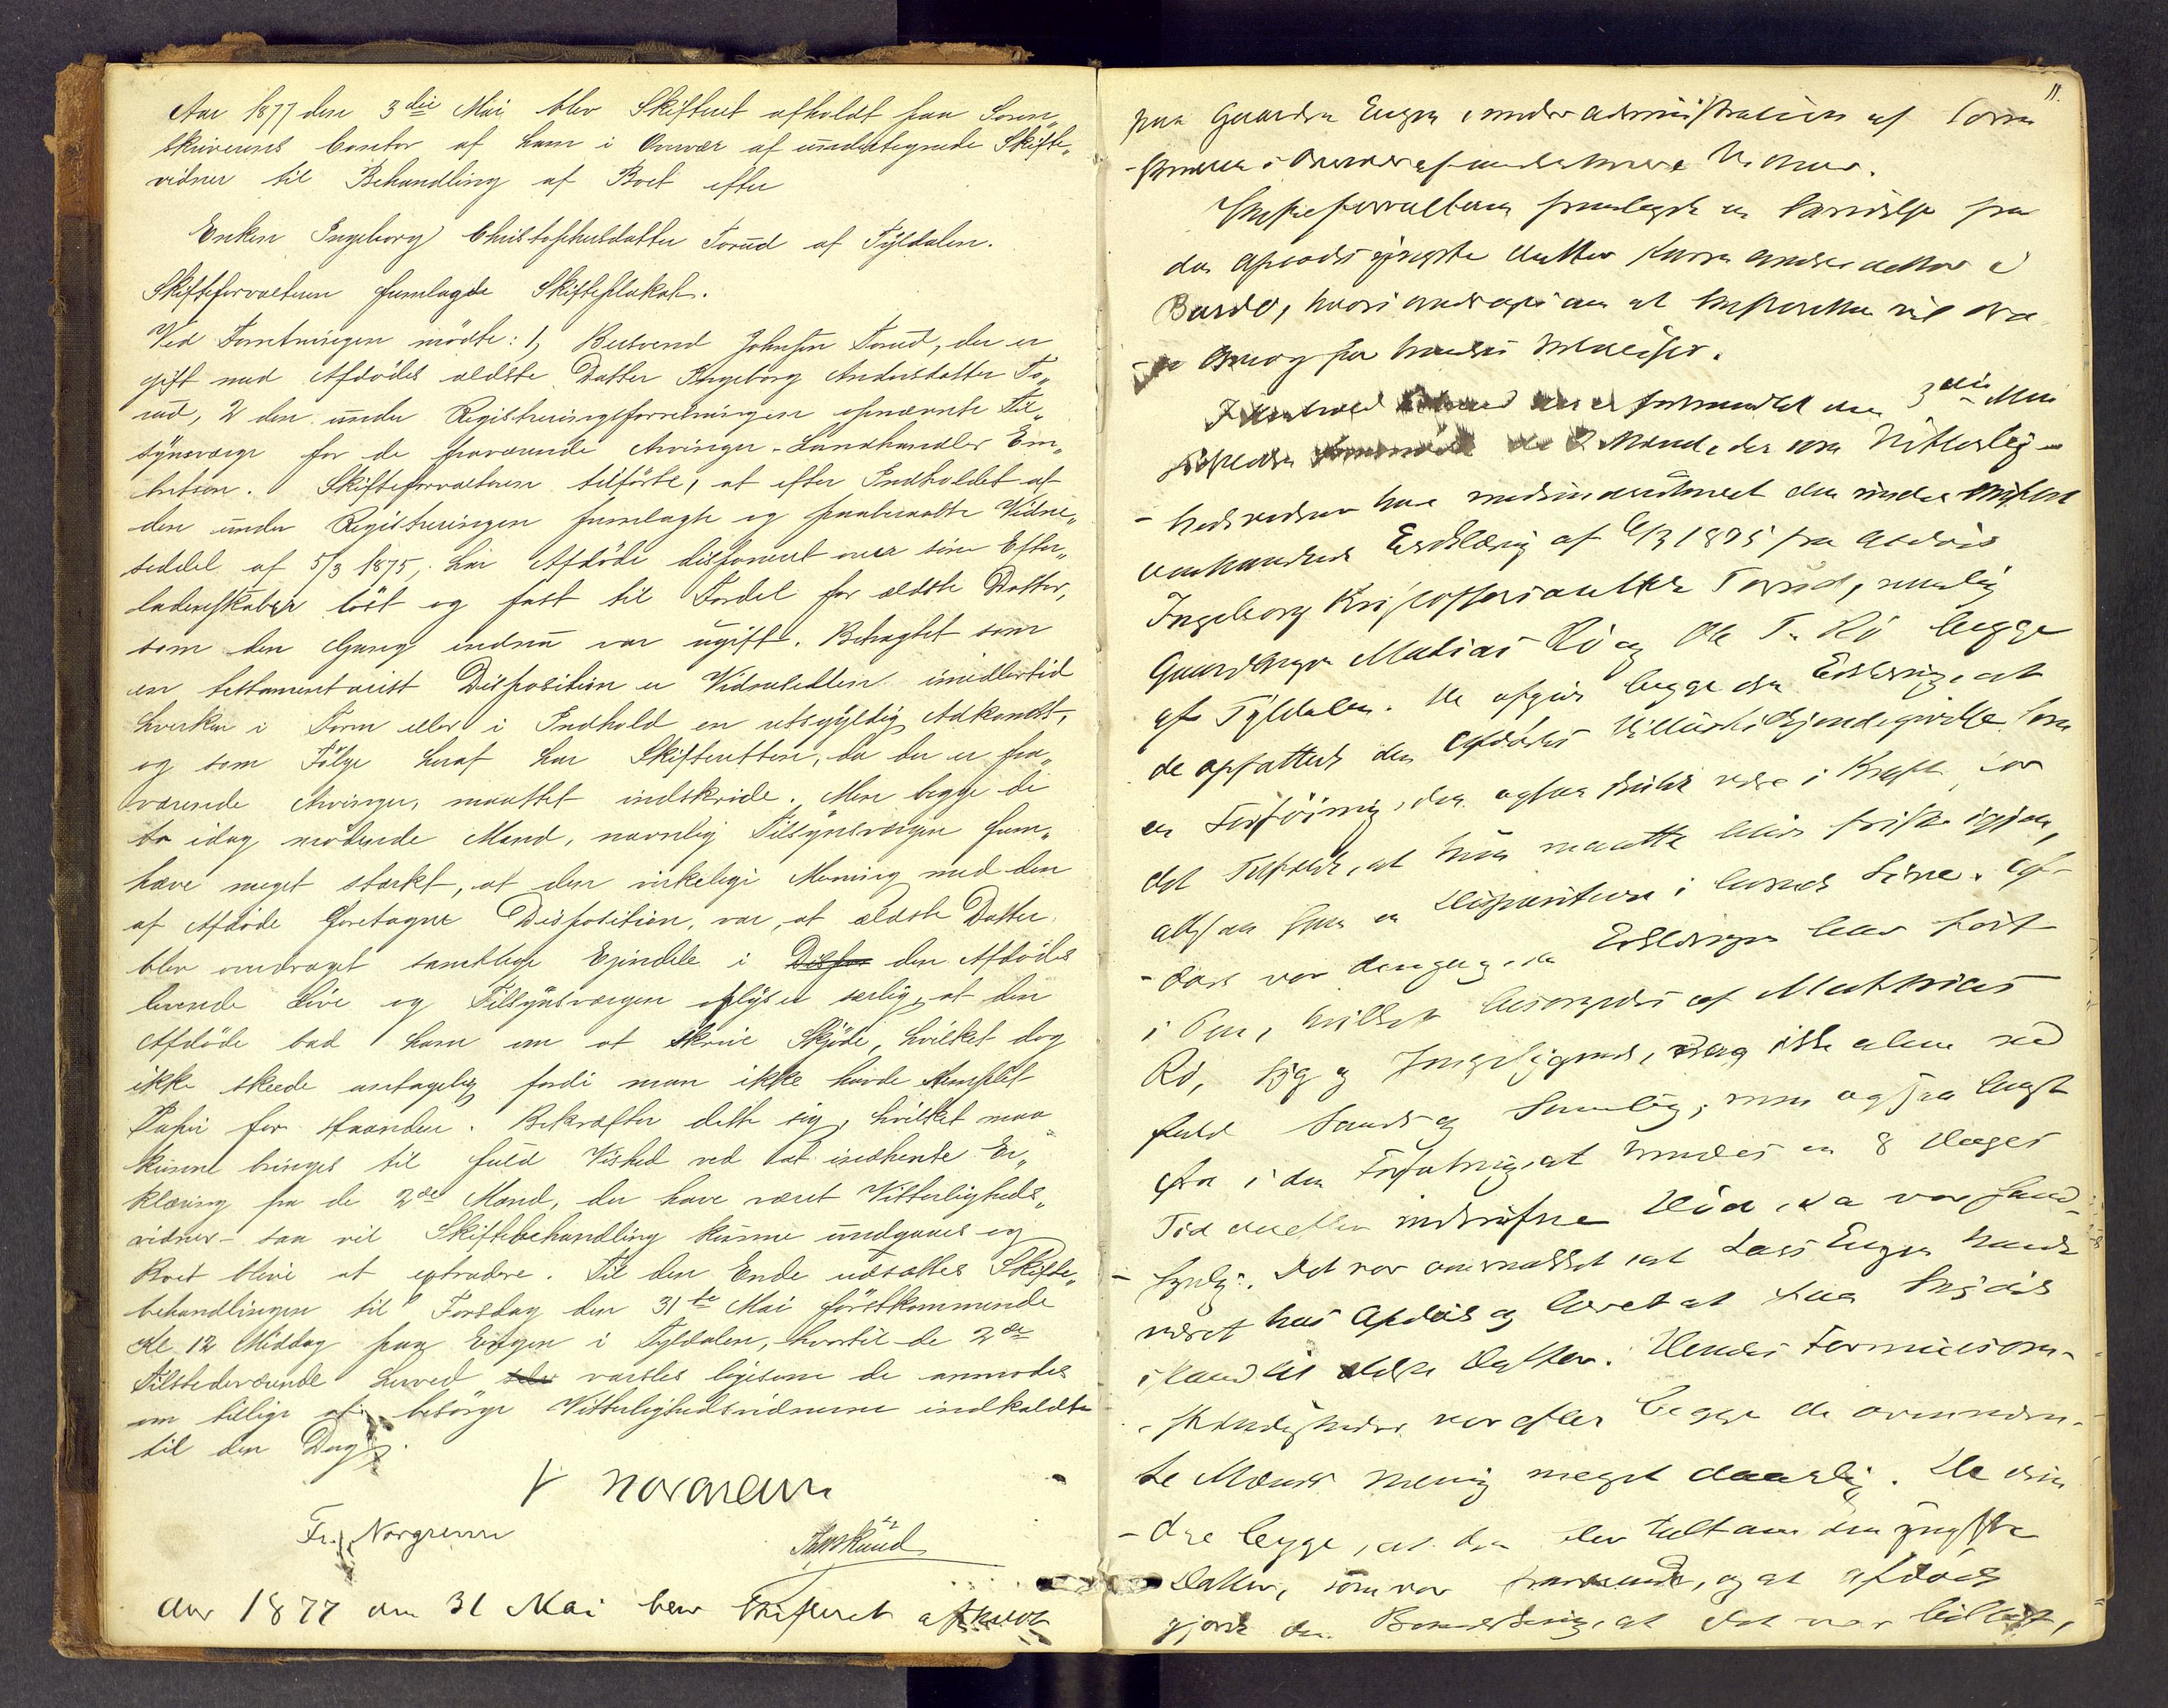 Aar 1877 den 3die Mai blev Skifteret afholdt paa Soren„
skriverens Contor af ham i Overvær af undertegnede Skifte„
vidner til Behandling af Boet efter
Enken Ingeborg Christophersdatter Torud af Tyldalen.
Skifteforvalteren fremlagde Skifteplakat.
Ved Forretningen mödte: 1, Bersvend Johnsen Torud, der er
gift med Afdödes ældste Datter Ingeborg Andersdatter To„
rud, 2 den under Registreringsforretningen opnævnte Til„
synsværge for de fraværende Arvinger - Landhandler Em„
bretsen. Skifteforvalteren tilförte, at efter Indholdet af
den under Registreringen fremlagte og paaberaabte Vidne„
seddel af 5/3 1875, har Afdöde disponeret over sine Efter„
ladenskaber löst og fast til Fordel for ældste Datter,
som den Gang endnu var ugift. Betragtet som
en testamentarist Disposition er Vidneseddelen imidlertid
hverken i Form eller i Indhold en retsgyldig Adkomst,
og som Fölge heraf har Skifteretten, da der er fra„
værende Arvinger, maattet indskride. Men begge de
to idag mödende Mænd, navnlig Tilsynsværgen frem„
hæve meget stærkt, at den virkelige Mening med den
af Afdöde foretagne Disposition, var, at ældste Datter
blev overdraget samtlige Ejendele i den Afdödes
levende Live og Tilsynsværgen oplyser særlig, at den
Afdöde bad ham om at skrive Skjöde, hvilket dog
ikke skeede antagelig fordi man ikke havde stemplet
Papir for Haanden. Bekræfter dette sig, hvilket maa
kunne bringes til fuld Vished ved at indhente Er„
klæring fra de 2de Mænd, der have været Vitterligheds„
vidner - saa vil Skiftebehandling kunne undgaaes og
Boet blive at extradere. Til den Ende udsattes Skifte„
behandlingen til Torsdag den 31te Mai förstkommende
Kl. 12 Middag paa Engen i Tyldalen, hvortil de 2de
Tilstedeværende herved varsles ligesom de anmodes
om tillige at besörge Vitterlighedsvidnerne indkaldte
til den Dag.
Norgrenn
Fr. Norgrenn
Aar 1877 den 31 Mai blev Skifteret afholdt
11.
paa Gaarden Engen under Administration af Soren
-skriveren i Overvær af undertegnede Vidner.
Skifteforvalteren fremlagde en Skrivelse fra
den Afdödes yngste Datter Karen Andersdatter i
Bardo, hvori
Omsorg for hendes Interesser.
3die Mai
Mænd, der som Vitterlig-
-hedsvidner have medunderskrevet den under Skiftet
omhandlede Erklæring af 5/3 1875 fra Afdöde
Ingeborg Kristoffersdatter Torud, nemlig
Gaardbruger Matias Rö og Ole T. Rö begge
af Tyldalen. De afgive begge den Erklæring, at
de opfattede den Afdödes Villieskjendegivelse som
en Forföining, der ogsaa skulde være i Kraft for
det Tilfælde, at hun maatte blive frisk igjen,
altsaa som en Disposition i levende Live. Af-
-döde var dengang, da Erklæringen blev fört
i Pen, hvilket besörgedes af Mathias
Rö, syg og sengeliggende, dog ikke alene ved
fuld Sands og Samling, men ogsaa langt
fra i den Forfatning, at hendes en 8 Dages
Tid derefter indtrufne Död, da var sand-
-synlig. Det var omsnakket at Lars Engen havde
været hos Afdöde og lovet at faa Skjöde
istand til ældste Datter. Hendes Formuesom-
-stændigheder var efter begge de ovennævn-
te Mænds Mening meget daarlig. De erin
-dre begge, at der blev talt om den yngste
Datter, som var fraværende, og at Afdöde
gjorde den Bemærkning, at det var billigt,